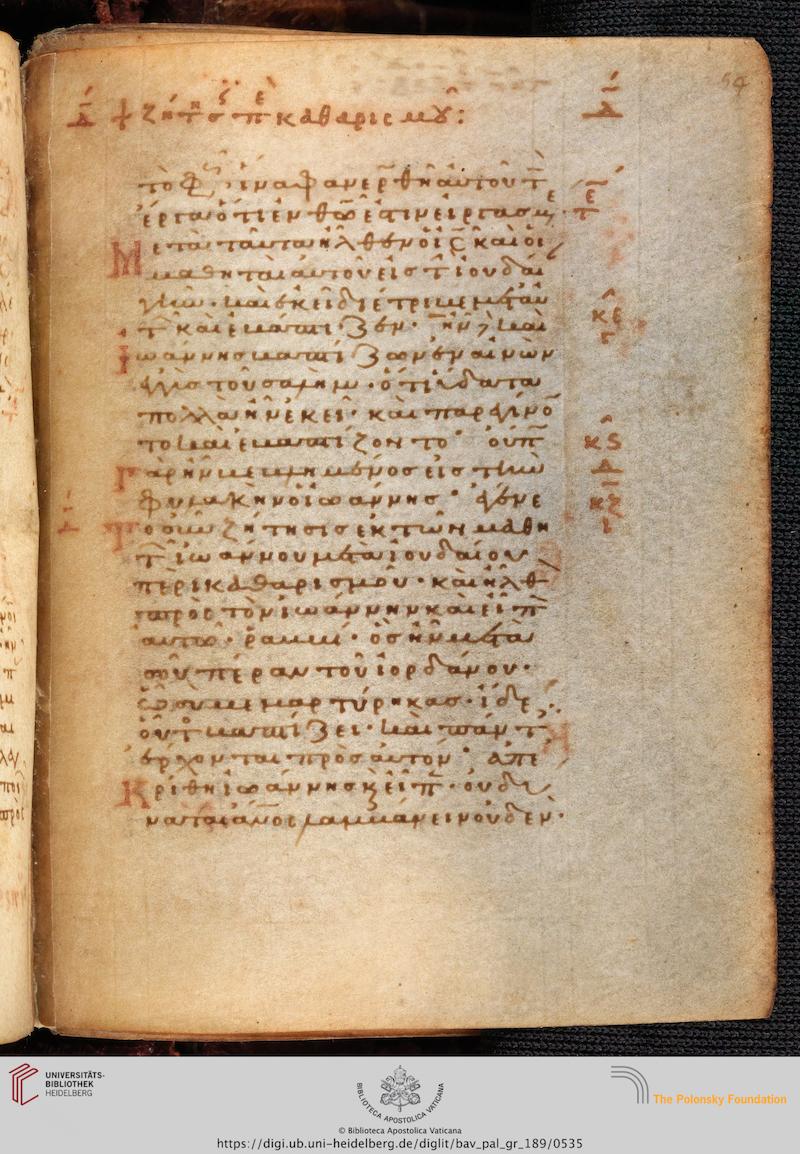 καθαρισμοῦ:
το φῶς ἵνα φανερωθῆ αυτοῦ τ̅
ἔργα ὅτι ἐν θῶ ἐστιν εἰργασμ
Μετὰ ταῦτα ἦλθεν ὁ ι̅ς̅ καὶ οἱ
μαθηταὶ αυτοῦ εἰς τ ϊουδαί
αν γῆν· καὶ ἐκεῖ διέτριβε μετ αυ
τ καὶ ἐβάπτιζεν· ἦν δὲ καὶ
ἰωάννης βαπτίζων ἐν αἰνὼν
ἐγγὺς τοῦ σαλήμ· ὅτι ὕδατα
πολλὰ ἦν ἐκεῖ· καὶ παρεγίνο
το καὶ ἐβαπτίζοντο· οὔπ
Γὰρ ἦν βεβλημένος εἰς τὴν
φυλακὴν ὁ ἰωάννης· ἐγένε
Το οὖν ζήτησις ἐκ τῶν μαθη
τ ἰωάννου μετὰ ἰουδαίου
περὶ καθαρισμοῦ· καὶ ἦλθ
πρὸς τὸν ἰωάννην καὶ εἶπ
αυτῶ· ραββί· ὃς ἦν μετὰ
σοῦ πέραν τοῦ ἰορδάνου·
ὧ σὺ μεμαρτύρηκας· ἴδε
οὗτ βαπτίζει· καὶ πάντ
ἔρχονται πρὸς αυτόν· ἀπε
Κρίθη ἰωάννης κ εἶπ· οὐ δύ
ναται ἄν̅ο̅ς λαμβάνειν οὐδὲν·
UNIVERSITÄTS-
BIBLIOTHEK
HEIDELBERG
BIBLIOTHECA APOSTOLICA VATICANA
The Polonsky Foundation
© Biblioteca Apostolica Vaticana
https://digi.ub.uni-heidelberg.de/diglit/bav_pal_gr_189/0535